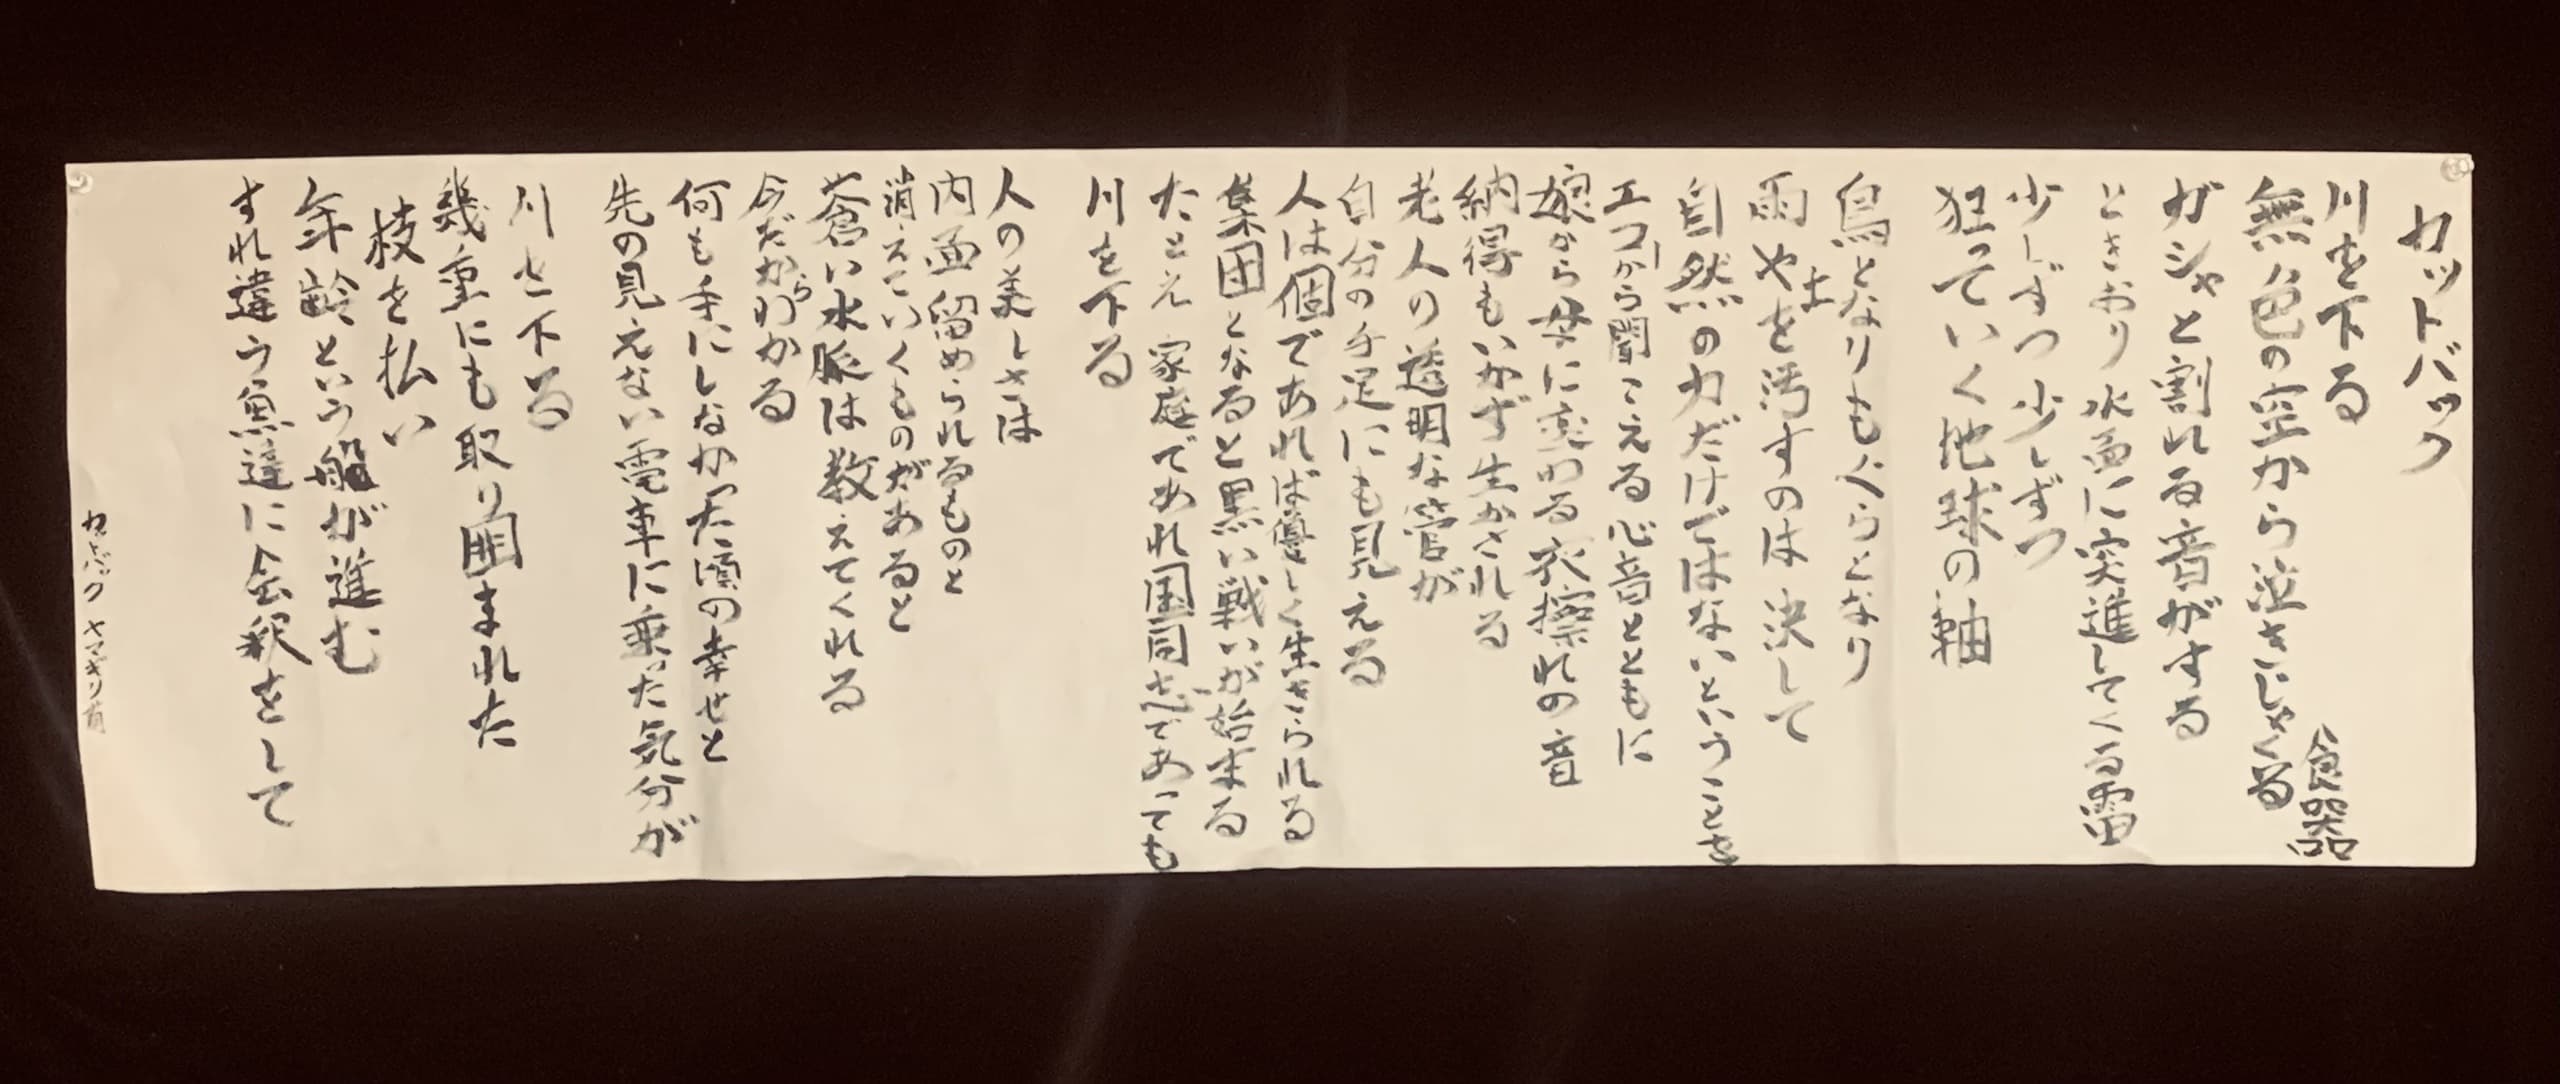 カットバック
川を下る
無色の空から空きにゃくる
食器
ガシャと割れる音がする
ときおり水面に突進してくる雷
少しずつ少しずつ
狂っていく地球の軸
鳥となりも人らとなり
雨やまを汚すのは決して
自然の力だけではないということを
エコーから聞こえる心音とともに
娘から母に変わる衣擦れの音
納得もいかず生かされる
老人の透明な管が
自分の手足にも見える
人は個であれば優しく生きられる
集団となると黒い戦いが始まる
たとえ 家庭であれ国同志であっても
川を下る
人の美しさは
内面留められるものと
消えていくものがあると
蒼い水脈は教えてくれる
今だからわかる
何も手にしなかった頃の幸せと
先の見えない電車に乗った気分が
川を下る
幾重にも取り囲まれた
枝を払い
年齢という船が進む
すれ違う魚達に会釈をして
カットバック ヤマギリ